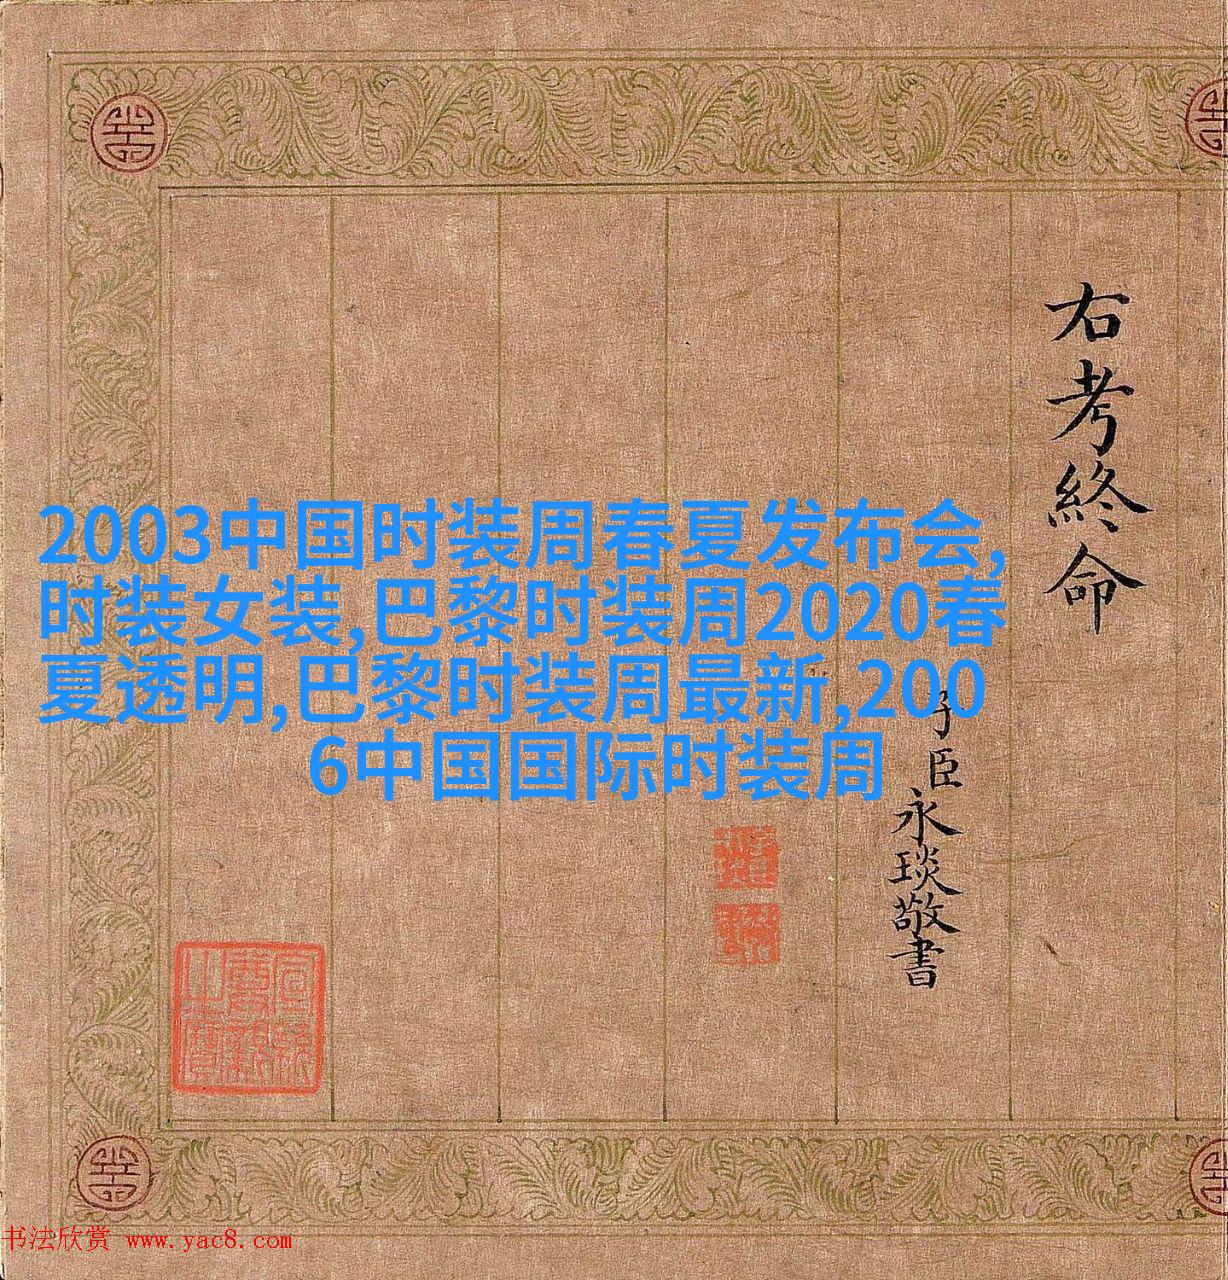 右考終命
子臣永琰敬書
2003中国时装周春夏发布会,
时装女装,巴黎时装周2020春
夏透明,巴黎时装周最新,200
6中国国际时装周
书法欣赏 www.yac8.com